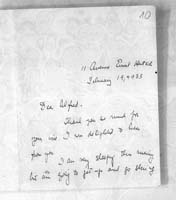 10
11 Avenue Ernest Hentsch
February 19, 1933
Dear Alfred.
Thank you so much for
your . I was delighted to hear
from you
I am very sleepy this morning
but am going to get up and go